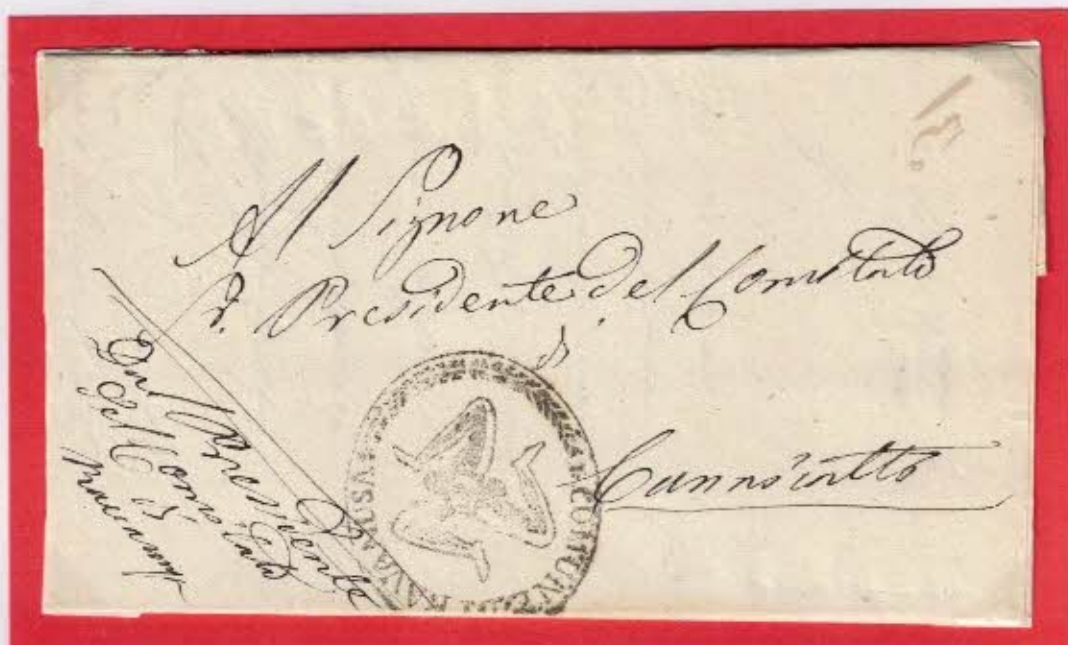 Al Signore
Sr. Presidente del Comitato
di
Cannicattì
Dal Presidente
del Comitato
di
COMUNE DI RAVANUSA